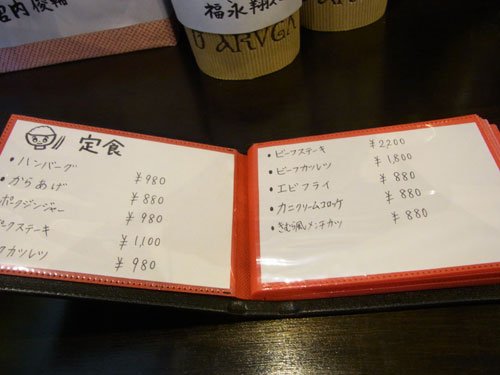 宮内俊輔
福永翔
ARUGA
定食
・ハンバーグ ￥980
・からあげ ￥880
ポークジンジャー ￥980
ークステーキ ￥1,100
クカツレツ ￥980
・ビーフステーキ ￥2200
・ビーフカツレツ ￥1,800
・エビフライ ￥880
・カニクリームコロッケ ￥880
・きむら風メンチカツ ￥880